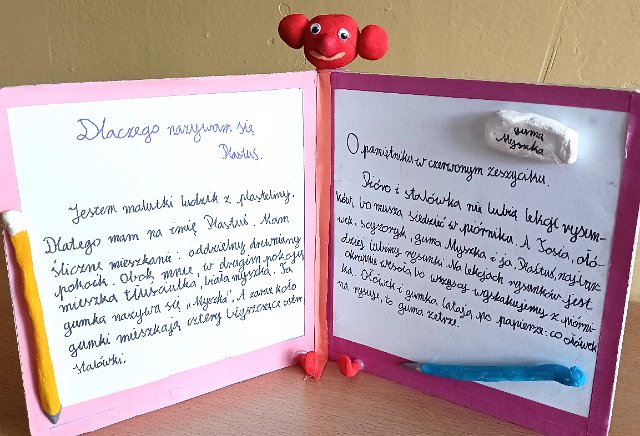 Dlaczego nazywam się
Plastuś.
Jestem malutki ludzik z plasteliny.
Dlatego mam na imię Plastuś. Mam
śliczne mieszkanie: oddzielny drewniany
pokoik. Obok mnie, w drugim pokoju
mieszka tłuściutka, biała myszka. Ta
gumka nazywa się „Myszka". A zaraz koło
gumki mieszkają cztery błyszczące ostre
stalówki.
guma
Myszka
O pamiętniku w czerwonym zeszyciku.
Pióro i stalówka nie lubią lekcji rysun-
ków, bo muszą siedzieć w piórniku. A Tosia, ołó-
wek, scyzoryk, guma Myszka i ja, Plastuś, najbar-
dziej lubimy rysunki. Na lekcjach rysunków jest
okropnie wesoło bo wszyscy wyskakujemy z piórni-
ka. Ołówek i gumka latają po papierze: co ołówek
na rysuje, to guma zetrze.